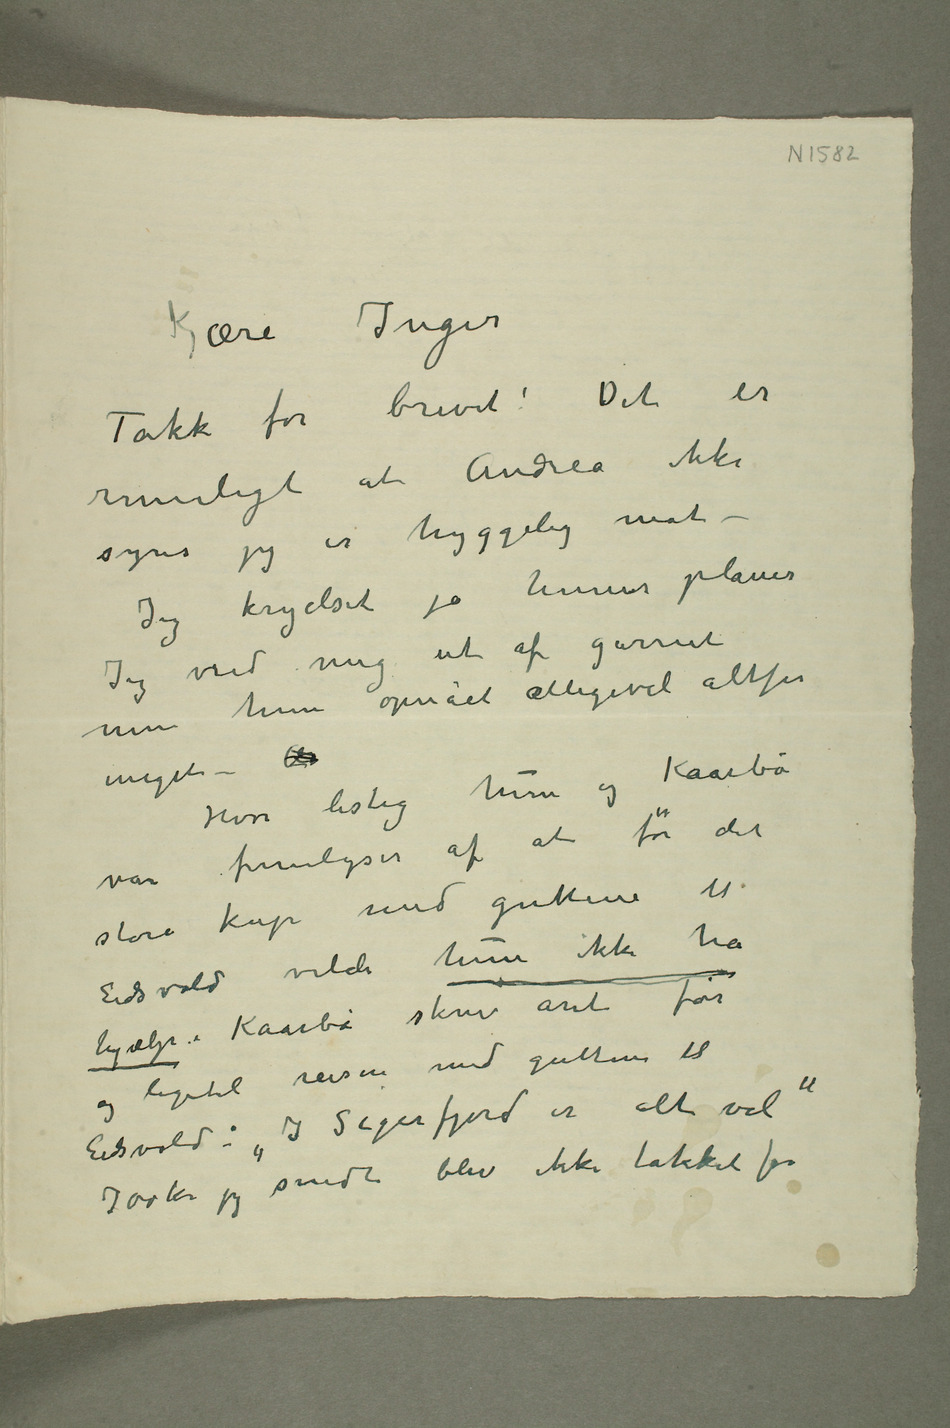 N1582
Kjære Inger
Takk for brevet! Det er
rimeligt at Andrea ikke
synes jeg er hyggelig mot –
Jeg krydset jo hennes planer
Jeg vred mig ut af garnet
men hun opnået alligevel altfor
meget –
Hvor listig hun og Kaarbö
var fremlyser af at för det
store kup med guttene til
Eidsvold vilde hun ikke ha
hjælp. Kaarbö skrev året før
og ligetil reisen med guttene til
Eidsvold: „I Sigerfjord er alt vel“
700 kr jeg sendte blev ikke takket for